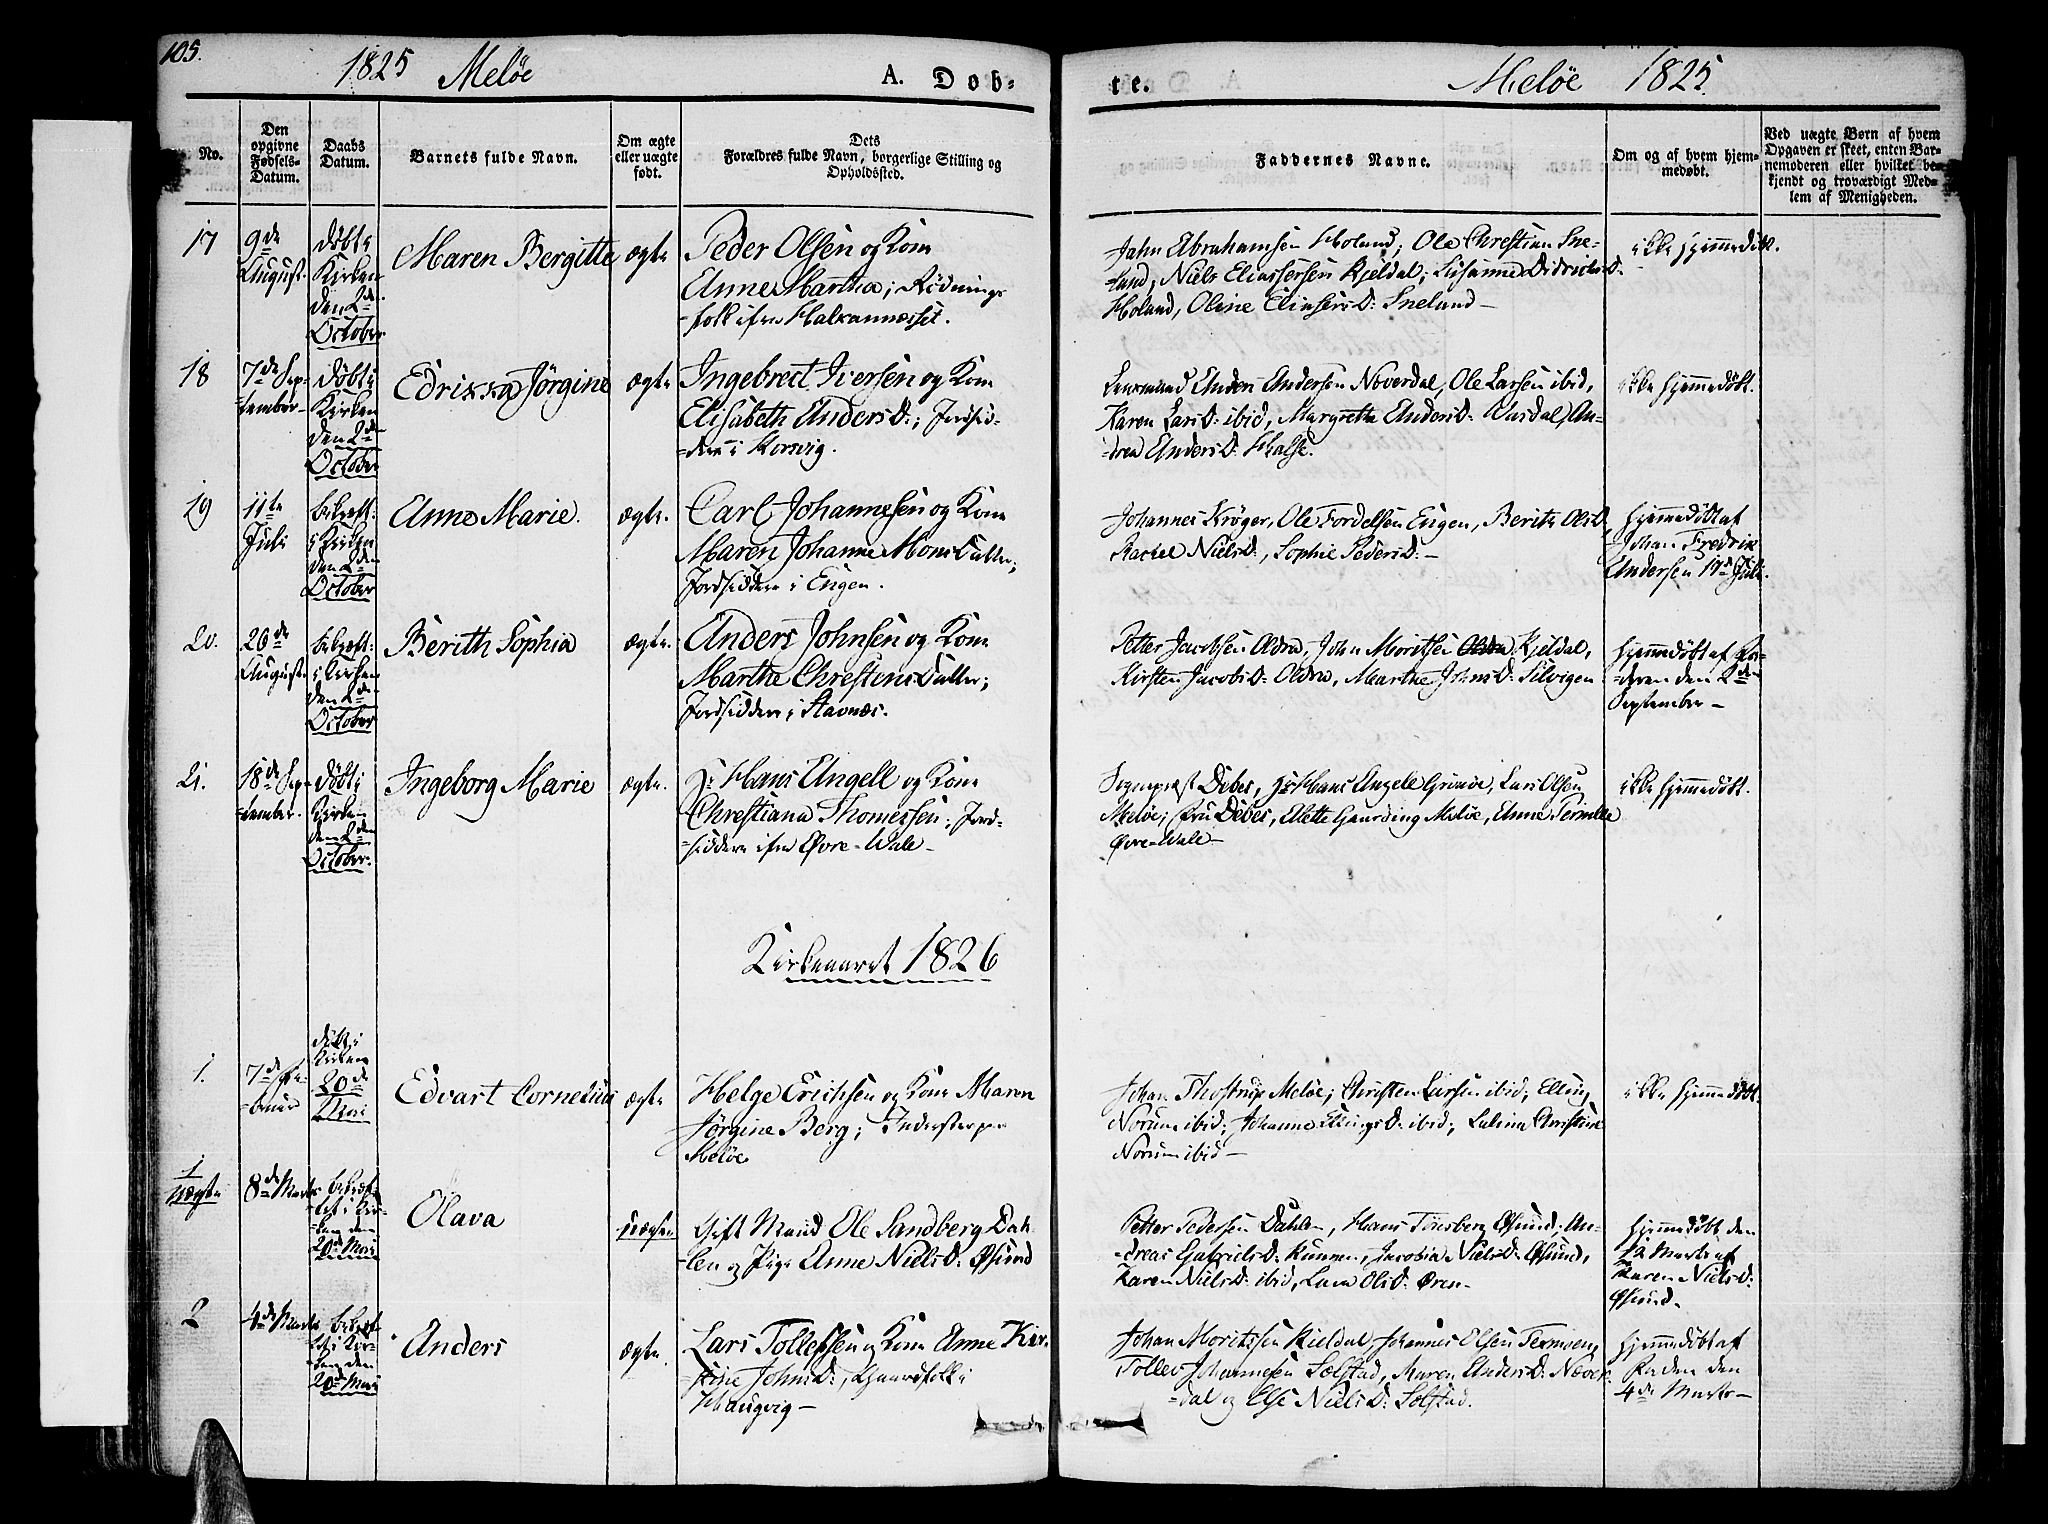 105.
1825 Meløe A. Døb-
te. Meløe 1825.
No.
Den
opgivne
Fødsels-
Datum.
Daabs
Datum.
Barnets fulde Navn.
Om ægte
eller uægte
født.
Dets
Forældres fulde Navn, borgerlige Stilling og
Opholdssted.
Faddernes Navne.
Om og af hvem hjem-
medøbt.
Ved uægte Børn af hvem
Opgaven er skeet, enten Bar-
nemoderen eller hvilket be-
kjendt og troværdigt Med-
lem af Menigheden.
17
9de
August
døbt i
Kirken
den 2den
October
Maren Bergitte
ægte
Peder Olsen og Kone
Anne Martha; Rødnings
=folk ifra Halsannæsset.
Jahn Abrahamsen Holand, Ole Christian Sne-
land, Niels Eliassersen Kjeldal, Susanne Didrichs D.
Holand, Oline Eliasers D: Sneland—
ikke hjemmedøbt.
18
7de Sep-
tember
døbt i
Kirken
den 2den
October
Edrixxa Jørgine
ægte
Ingebrect Iversen og Kone
Elisabeth Anders D:; Jordsid-
=dere i Korsvig.
Lensmand Anders Andersen Noverdal, Ole Larsen ibid,
Karen Lars D: ibid, Margrethe Anders D: Aasdal, An-
=drea Anders D: Halse.
ikke hjemmedøbt.
19
11te
Juli
bekræft:
i Kirken
den 2den
October
Anne Marie.
ægte.
Carl Johannesen og Kone
Maren Johanne Mons Datter,
Jordsiddere i Engen.
Johannes Krøger, Ole Fordelsen Engen, Berith Ols D,
Rachel Niels D:, Sophie Peders D:—
hjemmedøbt af
Johan Fredrik
Andersen 17de Juli.
20.
26de
August
bekræft:
i Kirken
den 2den
October
Berith Sophia
ægte.
Anders Johnsen og Kone
Marthe Christens Datter;
Jordsiddere i Stavnæs.
Petter Jacobsen Oldra, John Moritsen Kjeldal,
Kirsten Jacobs D: Oldra, Marthe Johns D: Selvigen
hjemmedøbt af Fa-
=deren den 2den
September—
21.
18de Sep-
=tember.
døbt i
Kirken
den 2den
October.
Ingeborg Marie
ægte.
Hans Angell og Kone
Christiana Thomessen; Jord-
=siddere ifra Øvre-Wale—
Sogneprest Debes, Hans Angele Grimøe, Lars Olsen
Meløe, Fru Debes, Elette Gaarding Meløe, Anne Pernille
Øvre-Wale—
ikke hjemmedøbt.
Kirkeaaret 1826
1.
7de
døbt i
Kirken
20de
Mari
Edvart Cornelius
ægte
Helge Erichsen og Kone Maren
Jørgine Berg; Inderster paa
Meløe
Johan Thostrup Meløe; Christen Larsen ibid; Elling
Norum ibid; Johanne Ellings D: ibid; Lalina Christine
Norum ibid—
ikke hjemmedøbt.
1
Uægte
8de Marts
bekræf-
tet i Kir-
ken den
20de Mari
Olava
uægte
Gift Mand Ole Sandberg Dah-
len og Pige Anne Niels D: Øsund
Petter Pedersen Dahlen, Hans Tønsberg Øsund, An-
=dreas Gabriels D: Kunnen, Jacobia Niels D: Øsund,
Karen Niels D: ibid, Lava Ols D: Øren—
hjemmedøbt den
12 Marts af
Karen Niels D:
Øsund.
2
4de Marts
bekræf-
tet i Kir-
ken den
20de Mari
Anders
ægte.
Lars Tollefsen og Kone Anne Kir-
stine Johns D:, Gaardfolk i
Haugvig—
Johan Moritssen Kieldal, Johannes Olsen Termoen,
Tolles Johannesen Solstad, Maren Anders D: Næver-
=dal og Else Niels D: Solstad.
hjemmedøbt af
Faderen den
4de Marts—